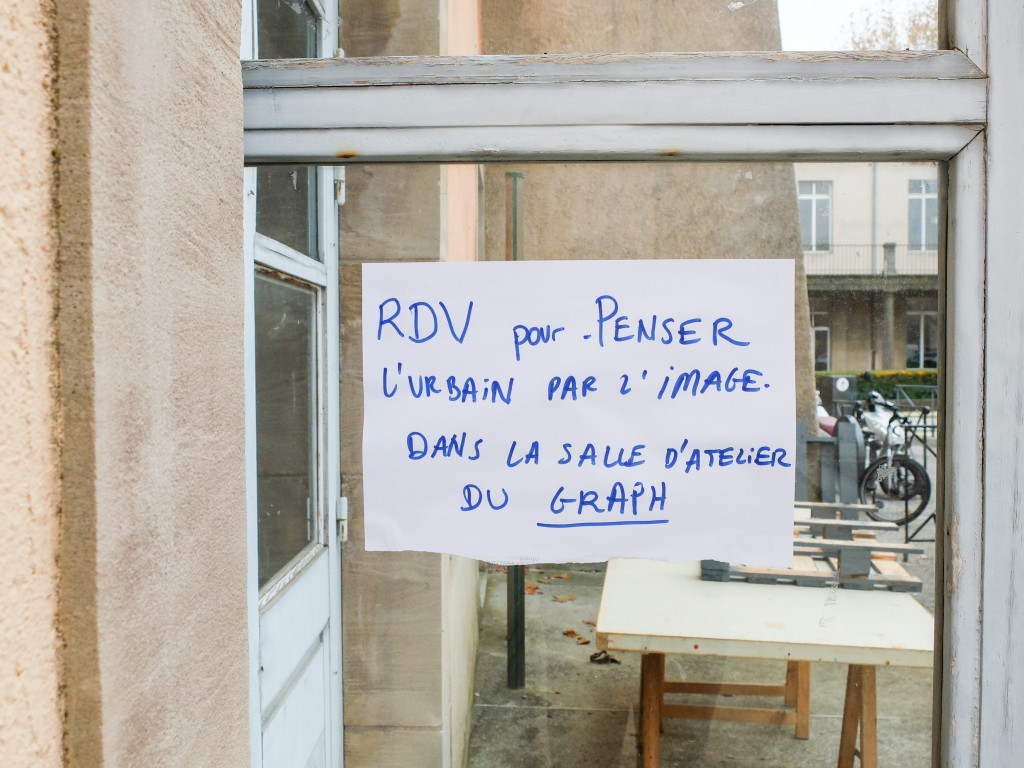 RDV pour - PENSER
L'URBAiN PAR L'iMAGE.
DANS LA SALLE D'ATELIER
DU GRAPH